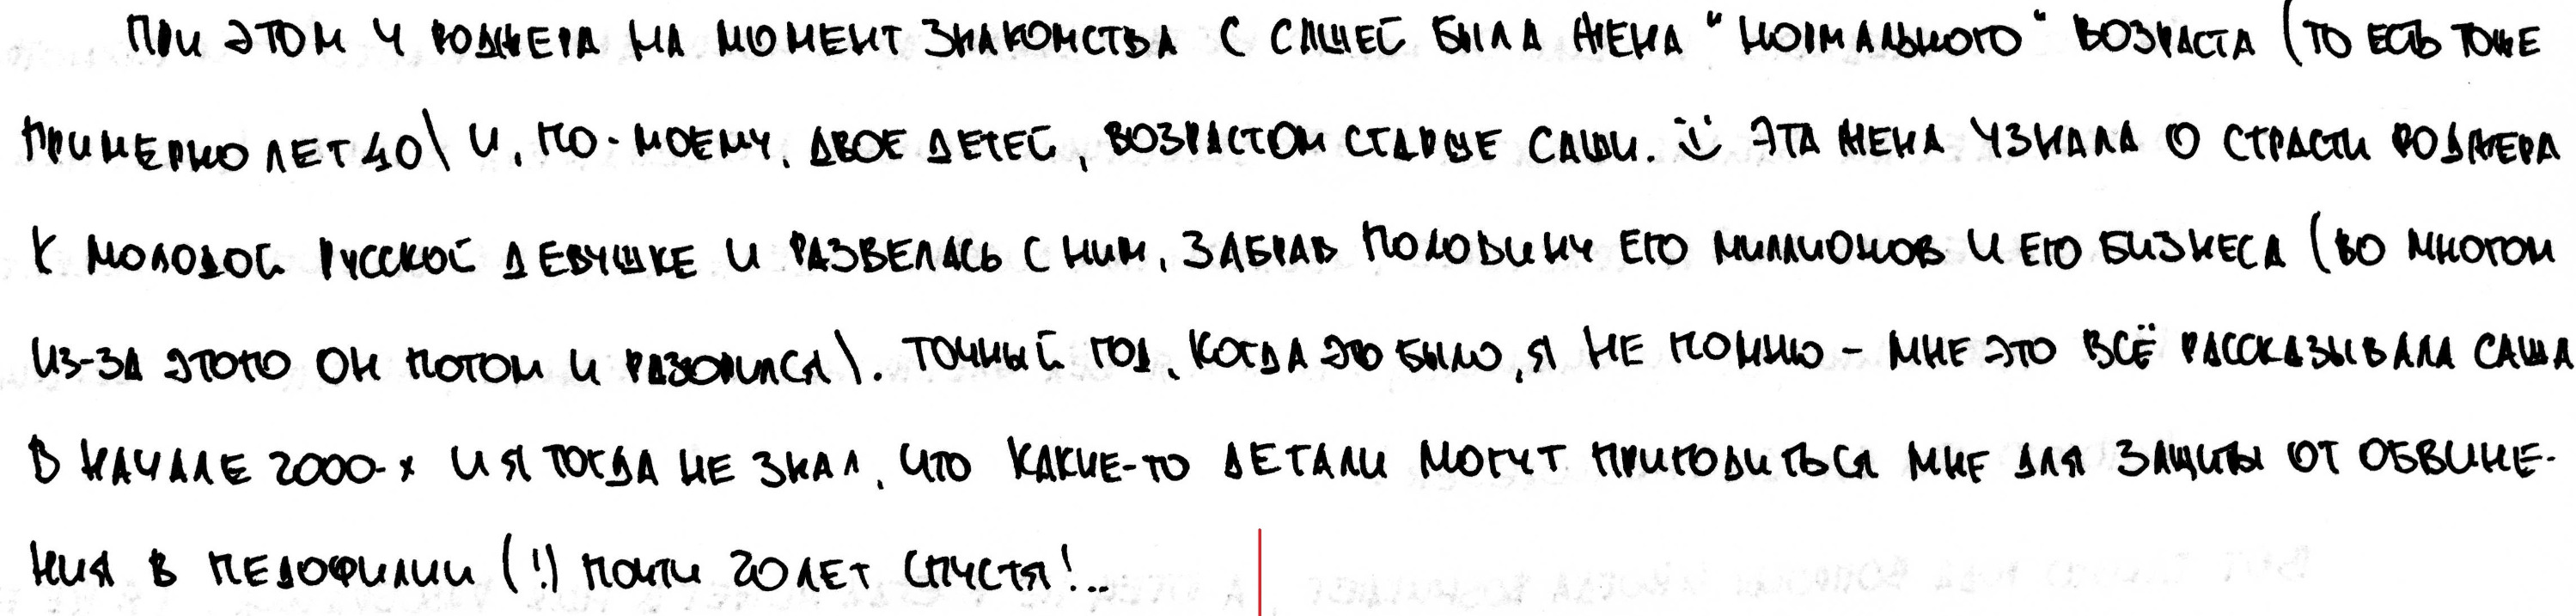 ПРИ ЭТОМ У РОДЖЕРА НА МОМЕНТ ЗНАКОМСТВА С САШЕЙ БЫЛА ЖЕНА "НОРМАЛЬНОГО" ВОЗРАСТА (ТО ЕСТЬ ТОЖЕ
ПРИМЕРНО ЛЕТ 40) И, ПО-МОЕМУ, ДВОЕ ДЕТЕЙ, ВОЗРАСТОМ СТАРШЕ САШИ. :) ЭТА ЖЕНА УЗНАЛА О СТРАСТИ РОДЖЕРА
К МОЛОДОЙ РУССКОЙ ДЕВУШКЕ И РАЗВЕЛАСЬ С НИМ, ЗАБРАВ ПОЛОВИНУ ЕГО МИЛЛИОНОВ И ЕГО БИЗНЕСА (ВО МНОГОМ
ИЗ-ЗА ЭТОГО ОН ПОТОМ И РАЗОРИЛСЯ). ТОЧНЫЙ ГОД, КОГДА ЭТО БЫЛО, Я НЕ ПОМНЮ - МНЕ ЭТО ВСЁ РАССКАЗЫВАЛА САША
В НАЧАЛЕ 2000-Х И Я ТОГДА НЕ ЗНАЛ, ЧТО КАКИЕ-ТО ДЕТАЛИ МОГУТ ПРИГОДИТЬСЯ МНЕ ДЛЯ ЗАЩИТЫ ОТ ОБВИНЕ-
НИЯ В ПЕДОФИЛИИ (!) ПОЧТИ 20 ЛЕТ СПУСТЯ!..